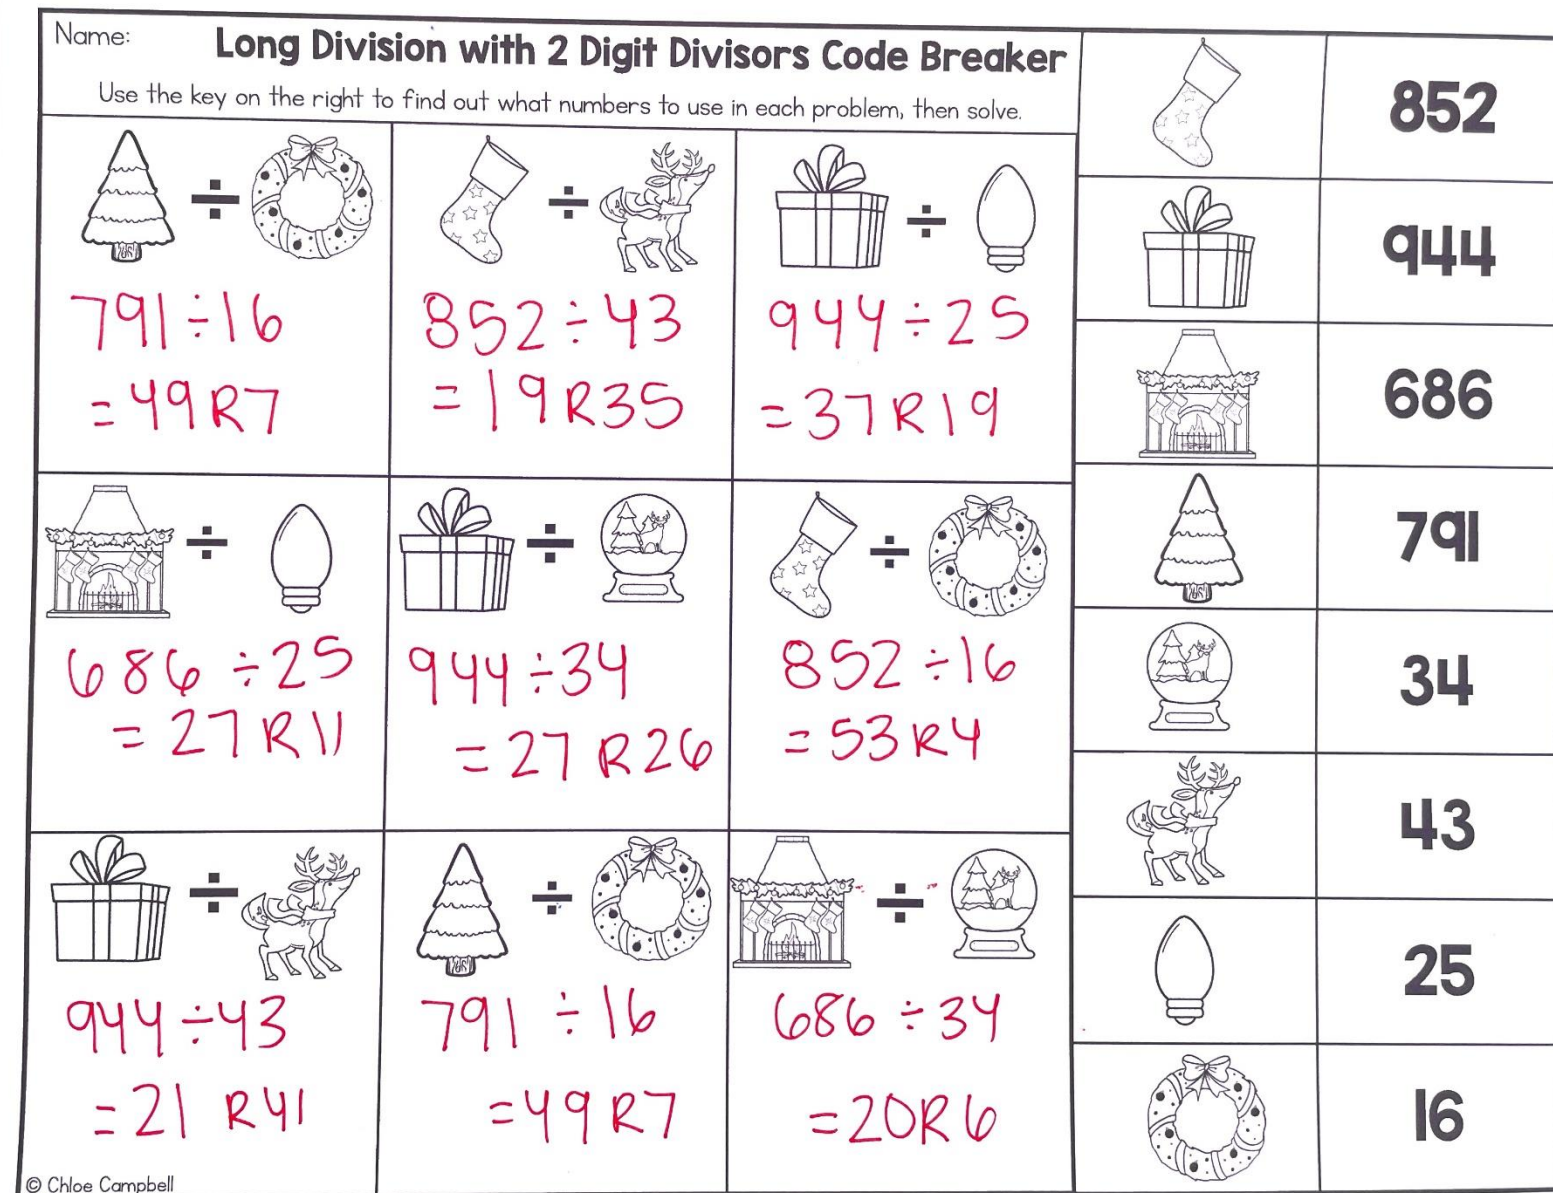 Name:
Long Division with 2 Digit Divisors Code Breaker
Use the key on the right to find out what numbers to use in each problem, then solve.
÷
791 ÷ 16
= 49 R7
÷
852 ÷ 43
= 19 R35
÷
944 ÷ 25
= 37 R19
÷
686 ÷ 25
= 27 R11
÷
944 ÷ 34
= 27 R26
÷
852 ÷ 16
= 53 R4
÷
944 ÷ 43
= 21 R41
÷
791 ÷ 16
= 49 R7
÷
686 ÷ 34
= 20 R6
852
944
686
791
34
43
25
16
© Chloe Campbell